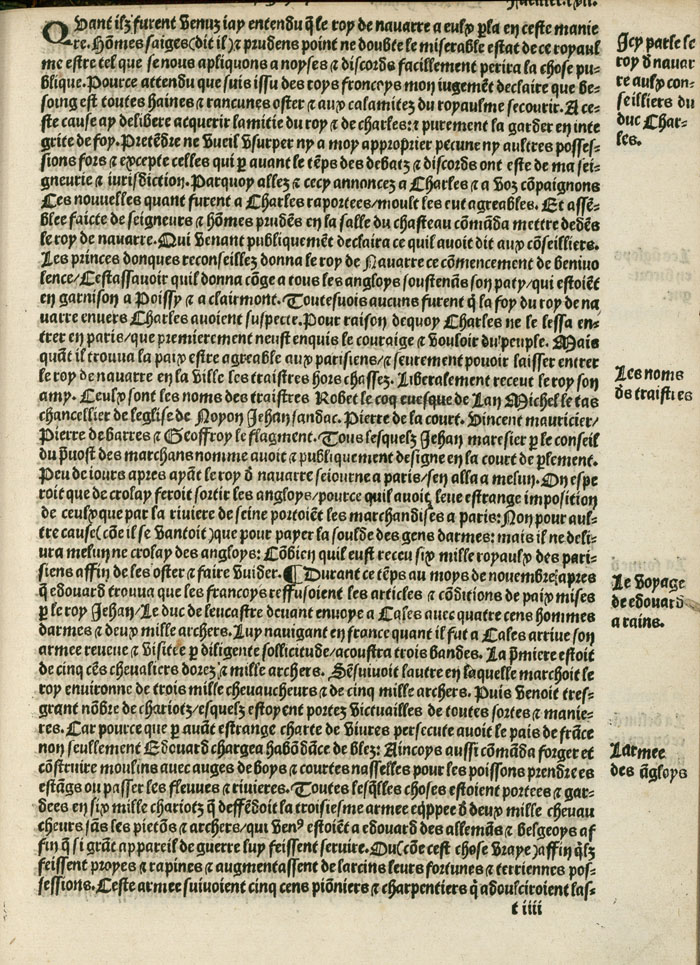 Quant ilz furent venuz iay entendu q̃ le roy de nauarre a eulx p̱la en ceste manie
re. Hõmes saiges(dit il)⁊ prudens point ne doubte le miserable estat de ce royaul
me estre tel que se nous apliquons a noyses ⁊ discords facillement perira la chose pu-
blique. Pource attendu que suis issu des roys francoys mon iugemẽt declaire que be-
soing est toutes haines ⁊ rancunes oster ⁊ aux calamitez du royaulme secourir. A ce-
ste cause ay delibere acquerir lamitie du roy ⁊ de charles:⁊ purement la garder en inte
grite de foy. Pretẽdre ne vueil vsurper ny a moy approprier pecune ny aultres posses-
sions fors ⁊ excepte celles qui p̱ auant le tẽps des debatz ⁊ discords ont este de ma sei-
gneurie ⁊ iurisdiction. Parquoy allez ⁊ cecy annoncez a Charles ⁊ a voz cõpaignons
Ces nouuelles quant furent a Charles raportees/moult les eut agreables. Et assẽ-
blee faicte de seigneurs ⁊ hõmes prudẽs en la salle du chasteau cõmãda mettre dedẽs
le roy de nauarre. Qui venant publiquemẽt declaira ce quil auoit dit aux cõseilliers.
Les princes donques reconseillez donna le roy de Nauarre ce cõmencement de beniuo
lence/Cestassauoir quil donna cõge a tous les angloys soustenãs son paty/qui estoiẽt
en garnison a Poissy ⁊ a clairmont. Toutesuois aucuns furent q̃ la foy du roy de na
uarre enuers Charles auoient suspecte. Pour raison dequoy Charles ne le lessa en-
trer en paris/que premierement neust enquis le couraige ⁊ vouloir du peuple. Mais
quãt il trouua la paix estre agreable aux parisiens/⁊ seurement pouoir laisser entrer
le roy de nauarre en la ville les traistres hors chassez. Liberalement receut le roy son
amy. Ceulx sont les noms des traistres Robet le coq euesque de Lan Michel le tas
chancellier de leglise de Noyon Jehan sandac. Pierre de la court. Vincent mauricier/
Pierre de barres ⁊ Geoffroy le flagment. Tous lesquelz Jehan maresier p̱ le conseil
du p̃uost des marchans nomme auoit ⁊ publiquement designe en la court de p̱lement.
Peu de iours apres ayãt le roy d̃ nauarre seiourne a paris/sen alla a melun. On espe
roit que de crolay feroit sortir les angloys/pource quil auoit leue estrange imposition
de ceulx que par la riuiere de seine portoiẽt les marchandises a paris: Non pour aul-
tre cause(cõe il se vantoit)que pour payer la soulde des gens darmes: mais il ne deli-
ura melun ne crolay des angloys: Cõbien quil eust receu six mille royaulx des pari-
siens affin de les oster ⁊ faire vuider. ¶ Durant ce tẽps au moys de nouembre/apres
q̃ edouard trouua que les francoys reffusoient les articles ⁊ cõditions de paix mises
p̱ le roy Jehan/Le duc de leucastre deuant enuoye a Cales auec quatre cens hommes
darmes ⁊ deux mille archers. Luy nauigant en france quant il fut a Cales arriue son
armee reueue ⁊ visitee p̱ diligente sollicitude/acoustra trois bandes. La p̃miere estoit
de cinq cẽs cheualiers dorez ⁊ mille archers. Sẽsuiuoit lautre en laquelle marchoit le
roy enuironne de trois mille cheuaucheurs ⁊ de cinq mille archers. Puis venoit tres-
grant nõbre de chariotz/esquelz estoyent portez victuailles de toutes sortes ⁊ manie-
res. Car pource que p̱ auãt estrange charte de viures persecute auoit le pais de frãce
non seullement Edouard chargea habõdãce de blez: Aincoys aussi cõmãda forger et
cõstruire moulins auec auges de boys ⁊ courtes nasselles pour les poissons prendre es
estãgs ou passer les fleuues ⁊ riuieres. Toutes lesq̃lles choses estoient portees ⁊ gar-
dees en six mille chariotz q̃ deffẽdoit la troisiesme armee eq̃ppee d̃ deux mille cheuau
cheurs sãs les pietõs ⁊ archers/qui venꝰ estoiẽt a edouard des allemãs ⁊ belgeoys af
fin q̃ si grãt appareil de guerre luy feissent seruire. Ou(cõe cest chose vraye)affin q̃lz
feissent proyes ⁊ rapines ⁊ augmentassent de larcins leurs fortunes ⁊ terriennes pos-
sessions. Ceste armee suiuoient cinq cens piõniers ⁊ charpentiers q̃ adoulciroient las-
t iiii
Icy parle le
roy d̃ nauar
re aulx con-
seilliers du
duc Char-
les.
Les noms
d̃s traistres
Le voyage
de edouard
a rains.
Larmee
des ãgloys